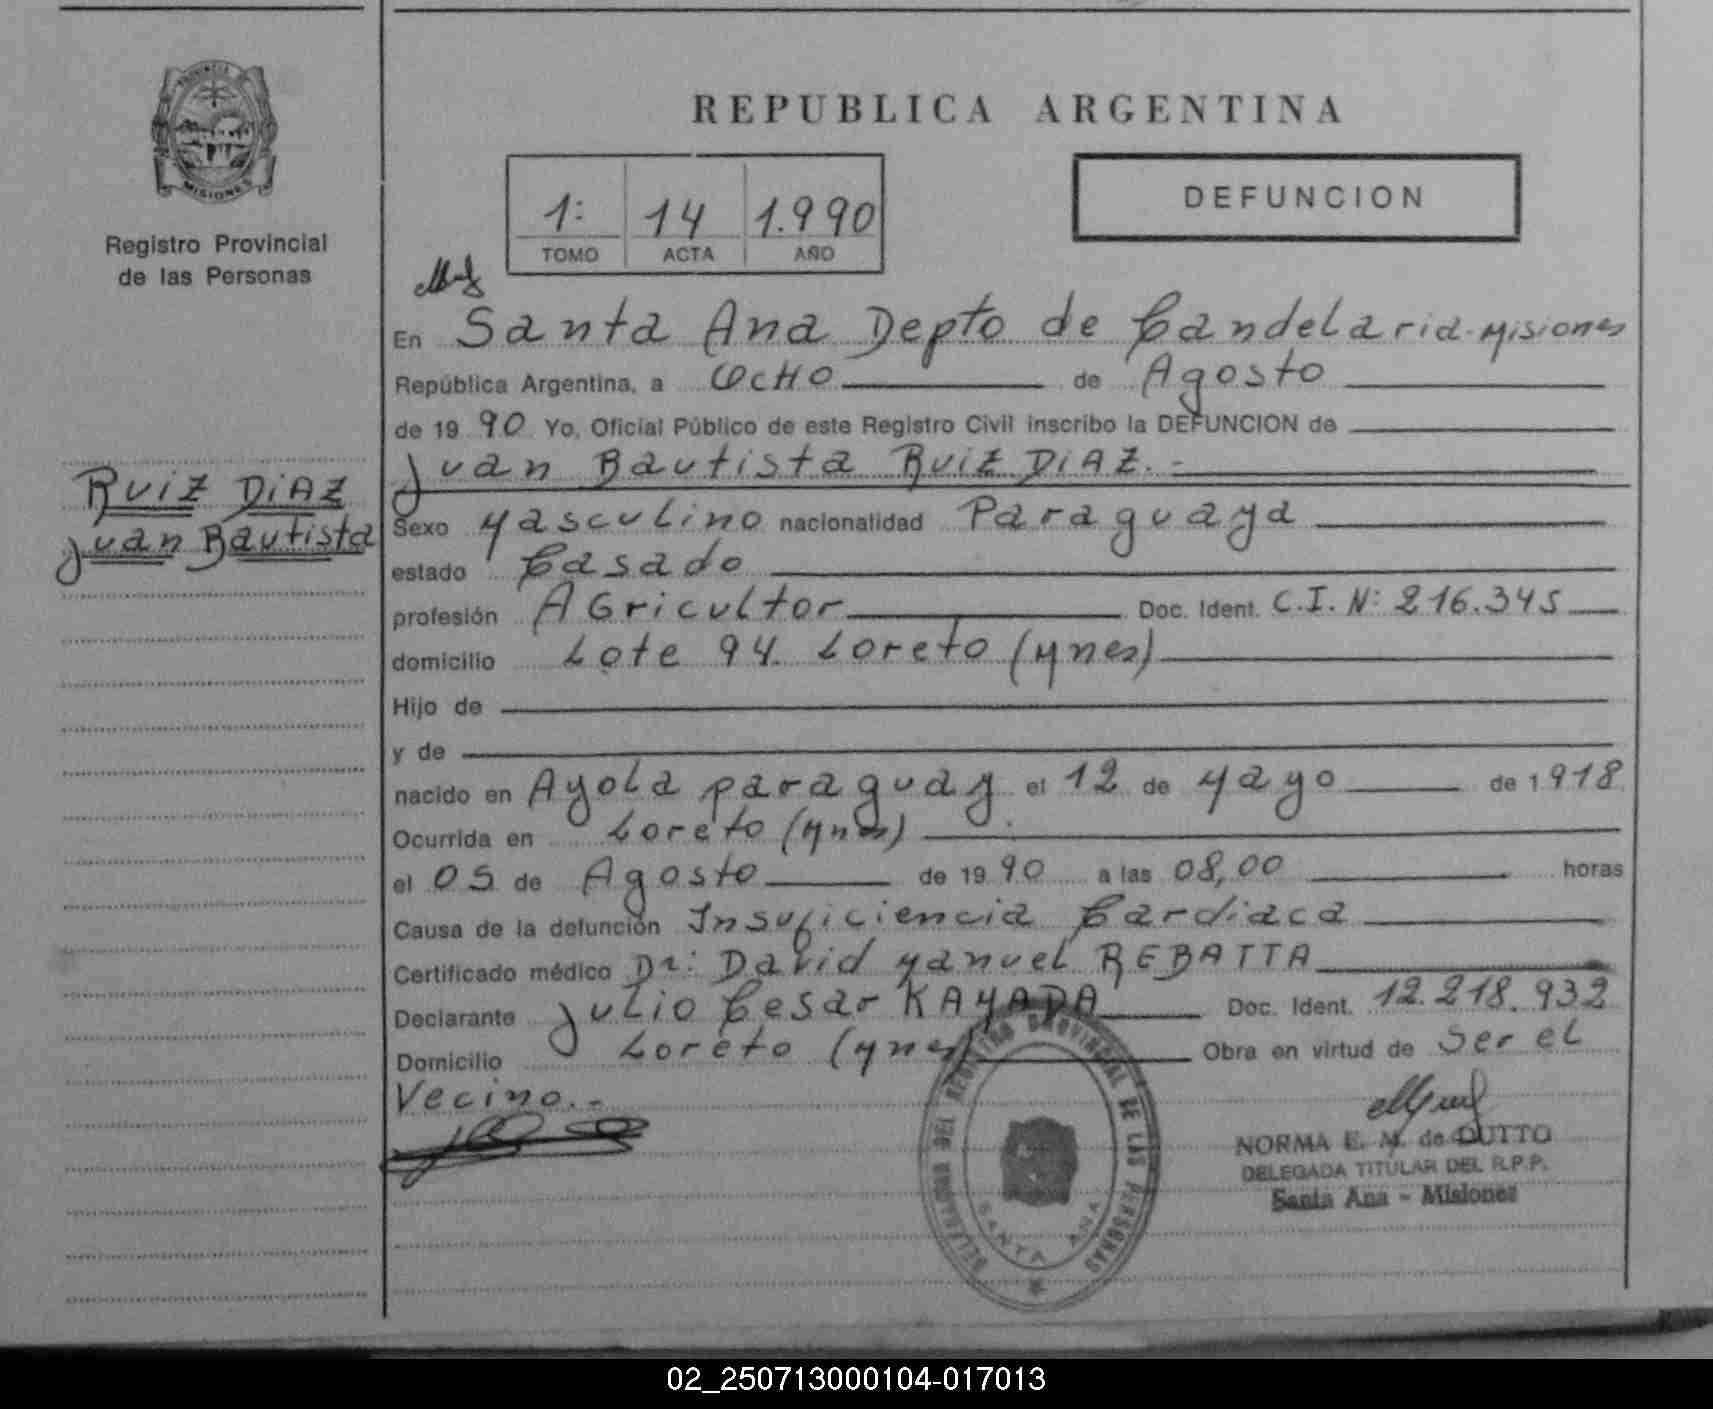 PROVINCIA DE
MISIONES
Registro Provincial
de las Personas
RUIZ DIAZ
Juan Bautista
REPUBLICA ARGENTINA
1: 14 1.990
TOMO ACTA AÑO
DEFUNCION
En Santa Ana Depto de Candelaria-Misiones
República Argentina, a OCHO de Agosto
de 1990 Yo, Oficial Público de este Registro Civil inscribo la DEFUNCION de
Juan Bautista RUIZ DIAZ.-
Sexo Masculino nacionalidad Paraguaya
estado Casado
profesión AGricultor Doc. Ident. C.I. N: 216.345
domicilio Lote 94. Loreto (Mnes)
Hijo de
y de
nacido en Ayola paraguay el 12 de Mayo de 1918
Ocurrida en Loreto (Mnes)
el 05 de Agosto de 1990 a las 08,00 horas
Causa de la defunción Insuficiencia Cardiaca
Certificado médico Dr: David Manuel REBATTA
Declarante Julio Cesar KAMADA Doc. Ident. 12.218.932
Domicilio Loreto (Mnes) Obra en virtud de Ser el
Vecino.-
DELEGACION DEL REGISTRO PROVINCIAL DE LAS PERSONAS
SANTA ANA
NORMA E. M. de DUTTO
DELEGADA TITULAR DEL R.P.P.
Santa Ana - Misiones
02_250713000104-017013